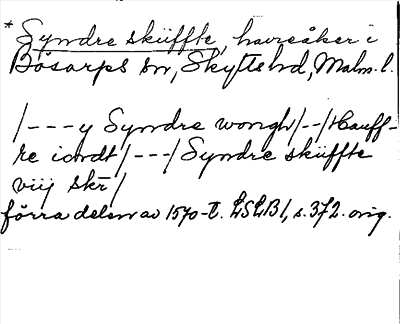 * Syndre skiiffte, havreåker i
Bösarps sn, Skytts hd, Malm. l.
/---y Syndre wongh/--/Hauff-
re iordt/---/Syndre skiiffte
viij skr/
förra delen av 1570-t. LSLB1, s. 372. orig.